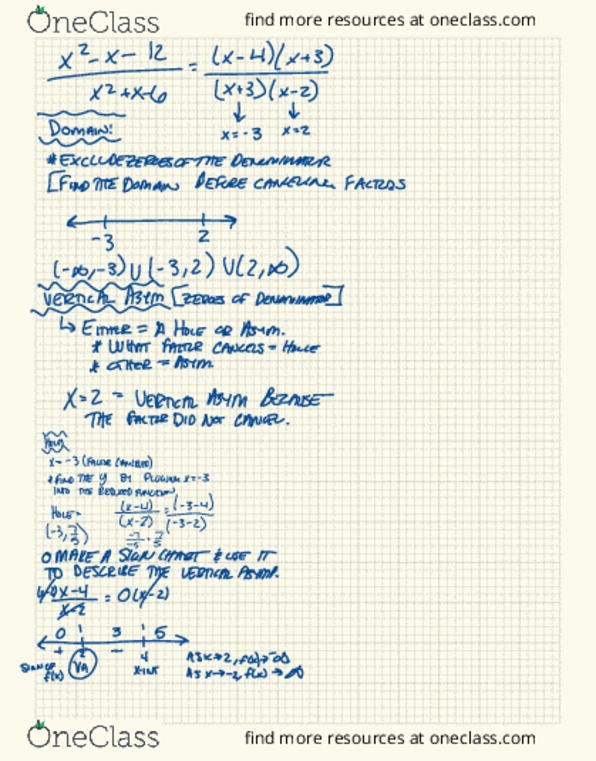 OneClass find more resources at oneclass.com
x²-x-12 / x²+x-6 = (x-4)(x+3) / (x+3)(x-2)
↓ ↓
x=-3 x=2
DOMAIN:
* EXCLUDE ZEROES OF THE DENOMINATOR
[FIND THE DOMAIN BEFORE CANCELING FACTORS
-3 2
(-∞,-3)∪(-3,2)∪(2,∞)
VERTICAL ASYM [ZEROES OF DENOMINATOR]
↳ EITHER = A HOLE OR ASYM.
* WHAT FACTOR CANCELS = HOLE
* OTHER = ASYM
X=2 = VERTICAL ASYM BECAUSE
THE FACTOR DID NOT CANCEL.
HOLE
x=-3 (FACTOR CANCELLED)
* FIND THE y BY PLUGGING x=-3
INTO THE REDUCED FUNCTION
HOLE= (x-4)/(x-2) = (-3-4)/(-3-2)
(-3, 7/5) -7/-5 = 7/5
O MAKE A SIGN CHART & USE IT
TO DESCRIBE THE VERTICAL ASYMP.
x-4 / x-2 = 0(x-2)
0 3 5
+ 2 - 4
SIGN OF f(x) VA X-INT
AS x→2, f(x)→-∞
AS x→-2, f(x)→∞
OneClass find more resources at oneclass.com